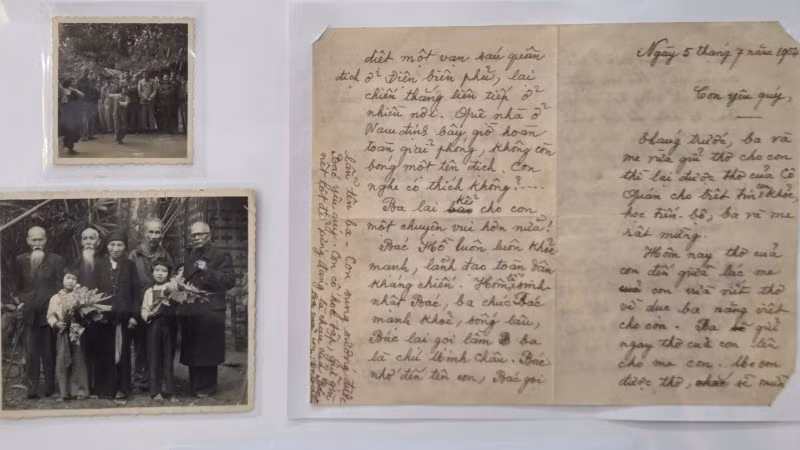 Ngày 5 tháng 7 năm 1954
Con yêu quý,
tháng trước, ba và
mẹ vừa gửi thơ cho con
thì lại được thơ của Cô
Quán cho biết tin con khỏe,
học tiến bộ, ba và mẹ
rất mừng.
Hôm nay thơ của
con đến giữa lúc mẹ
con vừa viết thơ
về dục ba năng viết
cho con. Ba sẽ gửi
ngay thơ của con lên
cho mẹ con. Mẹ con
được thơ, chắc sẽ mừn
diệt một vạn sáu quân
địch ở Điện biên phủ, lại
chiến thắng liên tiếp ở
nhiều nơi. Quê nhà ở
Nam định bây giờ hoàn
toàn giải phóng, không còn
bóng một tên địch. Con
nghe có thích không?....
Ba lại kể cho con
một chuyện vui hơn nữa!
Bác Hồ luôn luôn khỏe
mạnh, lãnh đạo toàn dân
kháng chiến. Hôm sinh
nhật Bác, ba chúc Bác
mạnh khỏe, sống lâu,
Bác lại gọi lầm ba
là chú Minh Châu. Bác
nhớ đến tên con, Bác gọi
lần tên ba - Con sung sướng được
Bác yêu quý. Con cố học tập, giữ gìn
nết tốt để xứng đáng là cháu của Bác